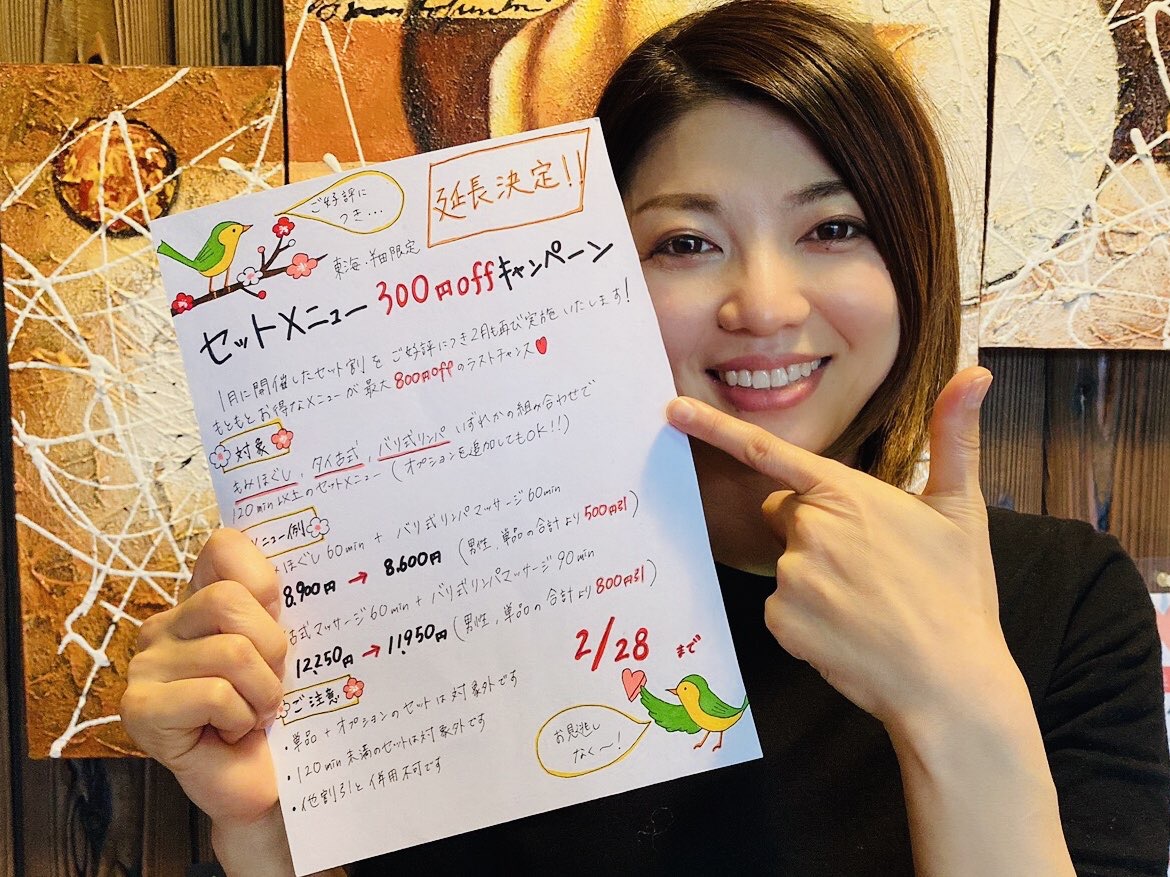 ご好評に
つき…
延長決定!!
東海・半田限定
セットメニュー 300円offキャンペーン
1月に開催したセット割を ご好評につき2月も再び実施いたします!
もともとお得なメニューが最大800円offのラストチャンス
対象
もみほぐし、タイ古式、バリ式リンパ いずれかの組み合わせで
120min以上のセットメニュー (オプションを追加してもOK!!)
ニュー例
ほぐし60min + バリ式リンパマッサージ60min
8.900円 → 8.600円 (男性、単品の合計より500円引)
古式マッサージ60min + バリ式リンパマッサージ90min
12,250円 → 11,950円 (男性、単品の合計より800円引)
2/28 まで
ご注意
・単品+オプションのセットは対象外です
・120min未満のセットは対象外です
・他割引と併用不可です
お見逃し
なく〜!